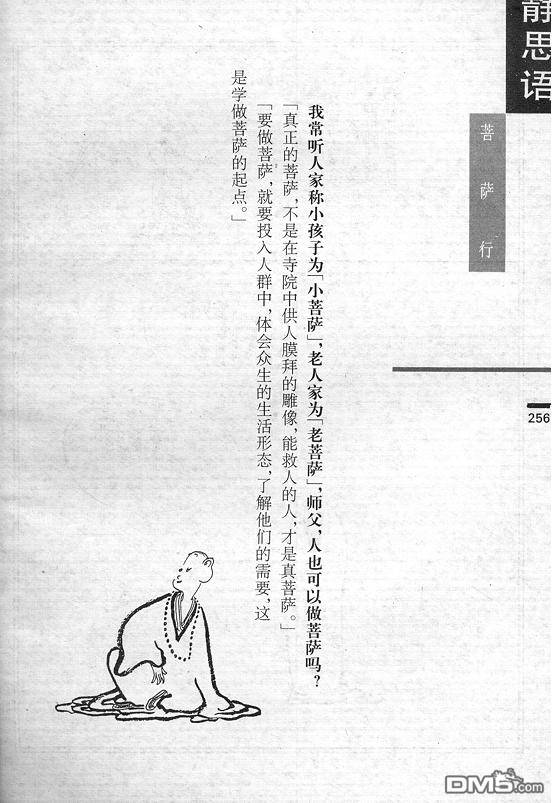 静思语
菩萨行
256
我常听人家称小孩子为「小菩萨」，老人家为「老菩萨」，师父，人也可以做菩萨吗？
「真正的菩萨，不是在寺院中供人膜拜的雕像，能救人的人，才是真菩萨。」
「要做菩萨，就要投入人群中，体会众生的生活形态，了解他们的需要，这
是学做菩萨的起点。」
DM5.com